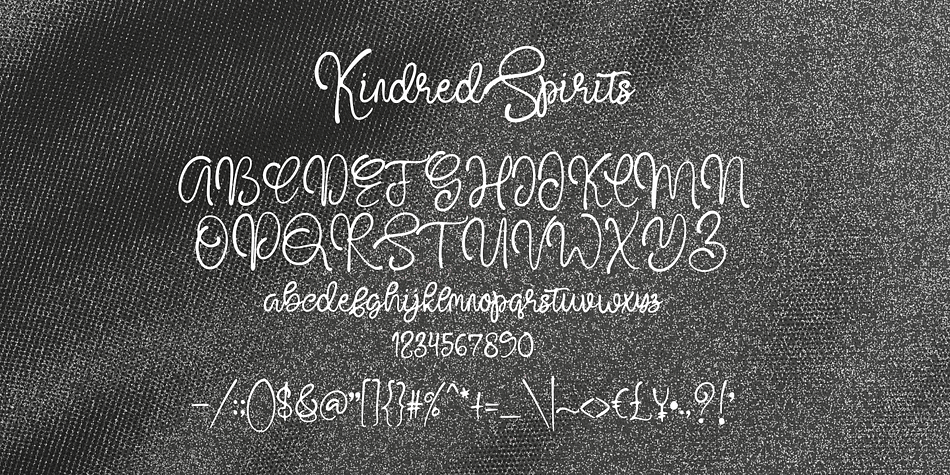 Kindred Spirits
ABCDEFGHIJKLMN
OPQRSTUVWXYZ
abcdefghijklmnopqrstuvwxyz
1234567890
-/:;()$&@"[]{}#%^*+=_\|~<>€£¥•.,?!'